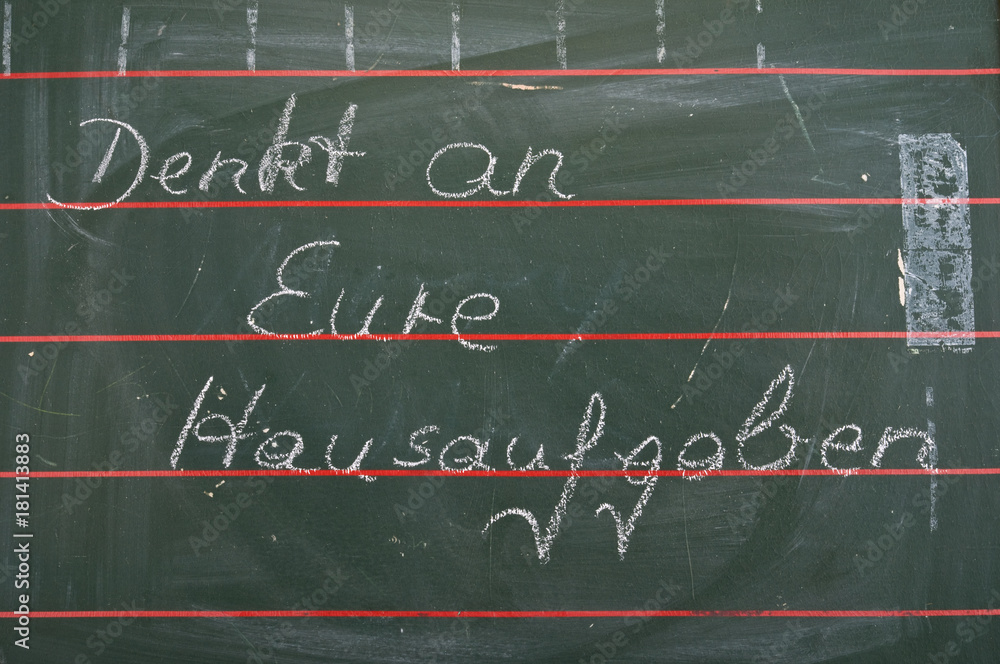 Denkt an
Eure
Hausaufgaben
Adobe Stock | #181413883